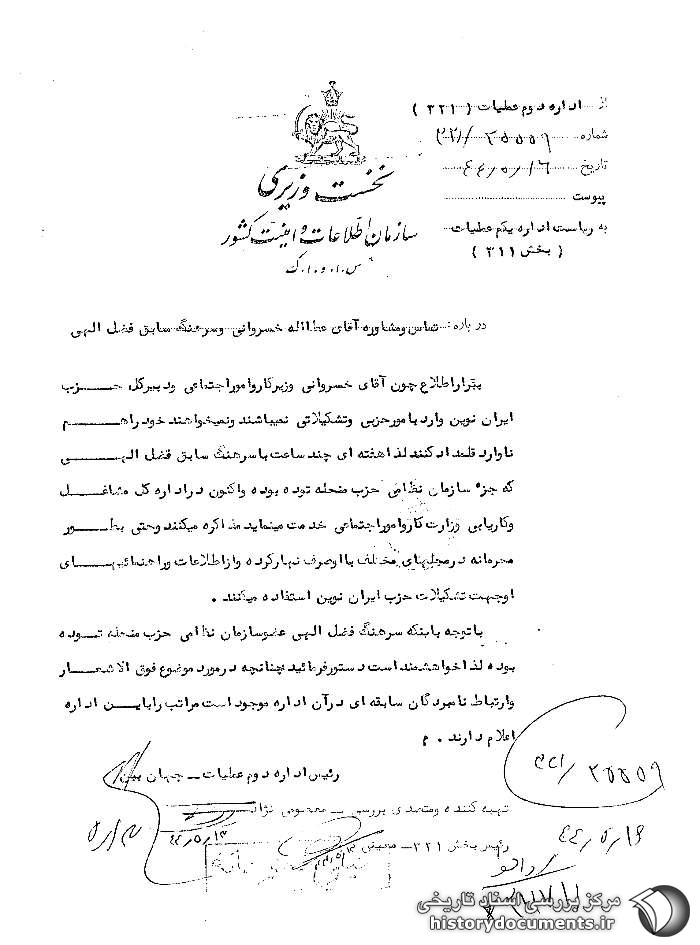 از اداره دوم عملیات ( ۳۲۱ )
شماره ۳۲۱/۲۵۵۵۹
تاریخ ۴۴/۵/۱۶
پیوست
به ریاست اداره یکم عملیات
( بخش ۳۱۱ )
نخست وزیری
سازمان اطلاعات و امنیت کشور
س.ا.و.ا.ک
درباره: تماس ومشاوره آقای عطااله خسروانی وسرهنگ سابق فضل الهی
بقراراطلاع چون آقای خسروانی وزیرکارواموراجتماعی ودبیرکل حزب
ایران نوین وارد بامورحزبی وتشکیلاتی نمیباشند ونمیخواهند خود راهم
ناوارد قلمداد کنند لذا هفته ای چند ساعت باسرهنگ سابق فضل الهی
که جزء سازمان نظامی حزب منحله توده بوده واکنون دراداره کل مشاغل
وکاریابی وزارت کارواموراجتماعی خدمت مینماید مذاکره میکنند وحتی بطور
محرمانه درمحلهای مختلف بااوصرف نهارکرده وازاطلاعات وراهنمائیهای
اوجهت تشکیلات حزب ایران نوین استفاده میکنند .
باتوجه باینکه سرهنگ فضل الهی عضوسازمان نظامی حزب منحله توده
بوده لذا خواهشمند است دستورفرمائید چنانچه درمورد موضوع فوق الاشعار
وارتباط نامبردگان سابقه ای درآن اداره موجود است مراتب راباین اداره
اعلام دارند . م
رئیس اداره دوم عملیات ــ جهان بین
۳۲۱/۲۵۵۵۹
تهیه کننده ومتصدی بررسی ــ معصومی نژاد
۴۴/۵/۱۶
رئیس بخش ۳۲۱ــ معینی
مرکز بررسی اسناد تاریخی
historydocuments.ir